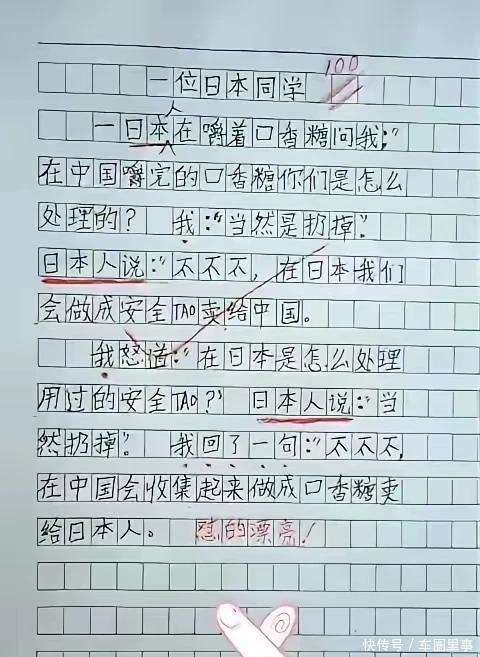 100
一位日本同学
一日本人在嚼着口香糖问我:"
在中国嚼完的口香糖你们是怎么
处理的? 我:"当然是扔掉".
日本人说:"不不不, 在日本我们
会做成安全TAO卖给中国。
我怒道:"在日本是怎么处理
用过的安全TAO?" 日本人说:"当
然扔掉". 我回了一句:"不不不,
在中国会收集起来做成口香糖卖
给日本人。 怼的漂亮!
快传号/车圈里事